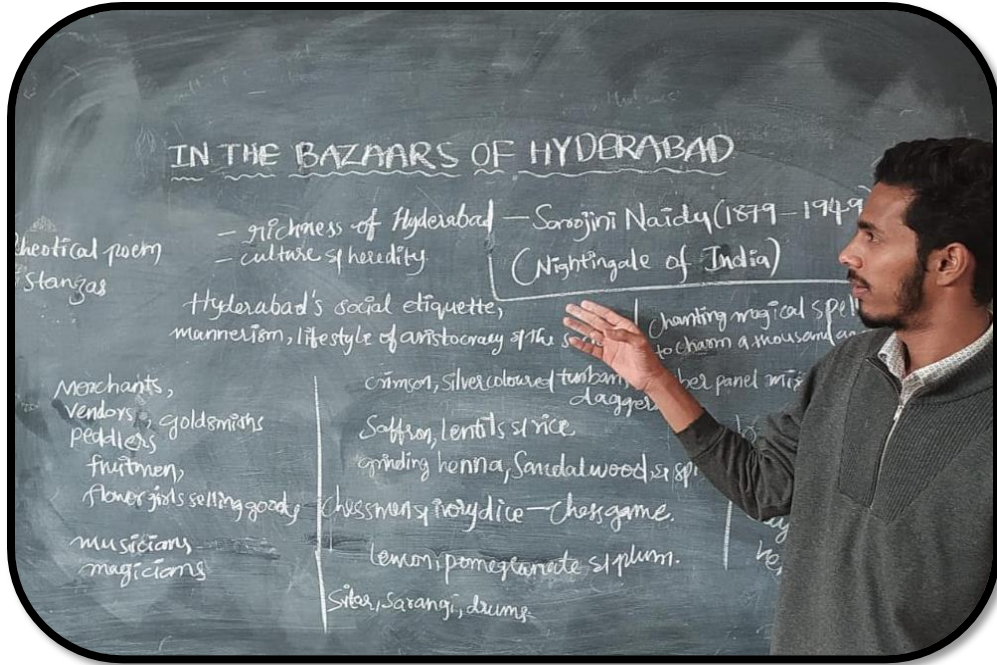 IN THE BAZAARS OF HYDERABAD
- richness of Hyderabad
- culture & heredity
- Sarojini Naidu (1879-1949
(Nightingale of India)
heotical poem
Stanzas
Hyderabad's social etiquette,
mannerism, lifestyle of aristocracy of the
chanting magical spel
to charm a thousand
Merchants,
vendors, goldsmiths
peddlers
fruitmen,
flower girls selling goods
musicians
magicians
crimson, silver coloured turbans,
dagger
ber panel mi
Saffron, lentils & rice
grinding henna, Sandalwood, & sp
Chessmen & ivory dice - chess game.
lemon, pomegranate & plum.
Sitar, Sarangi, drums